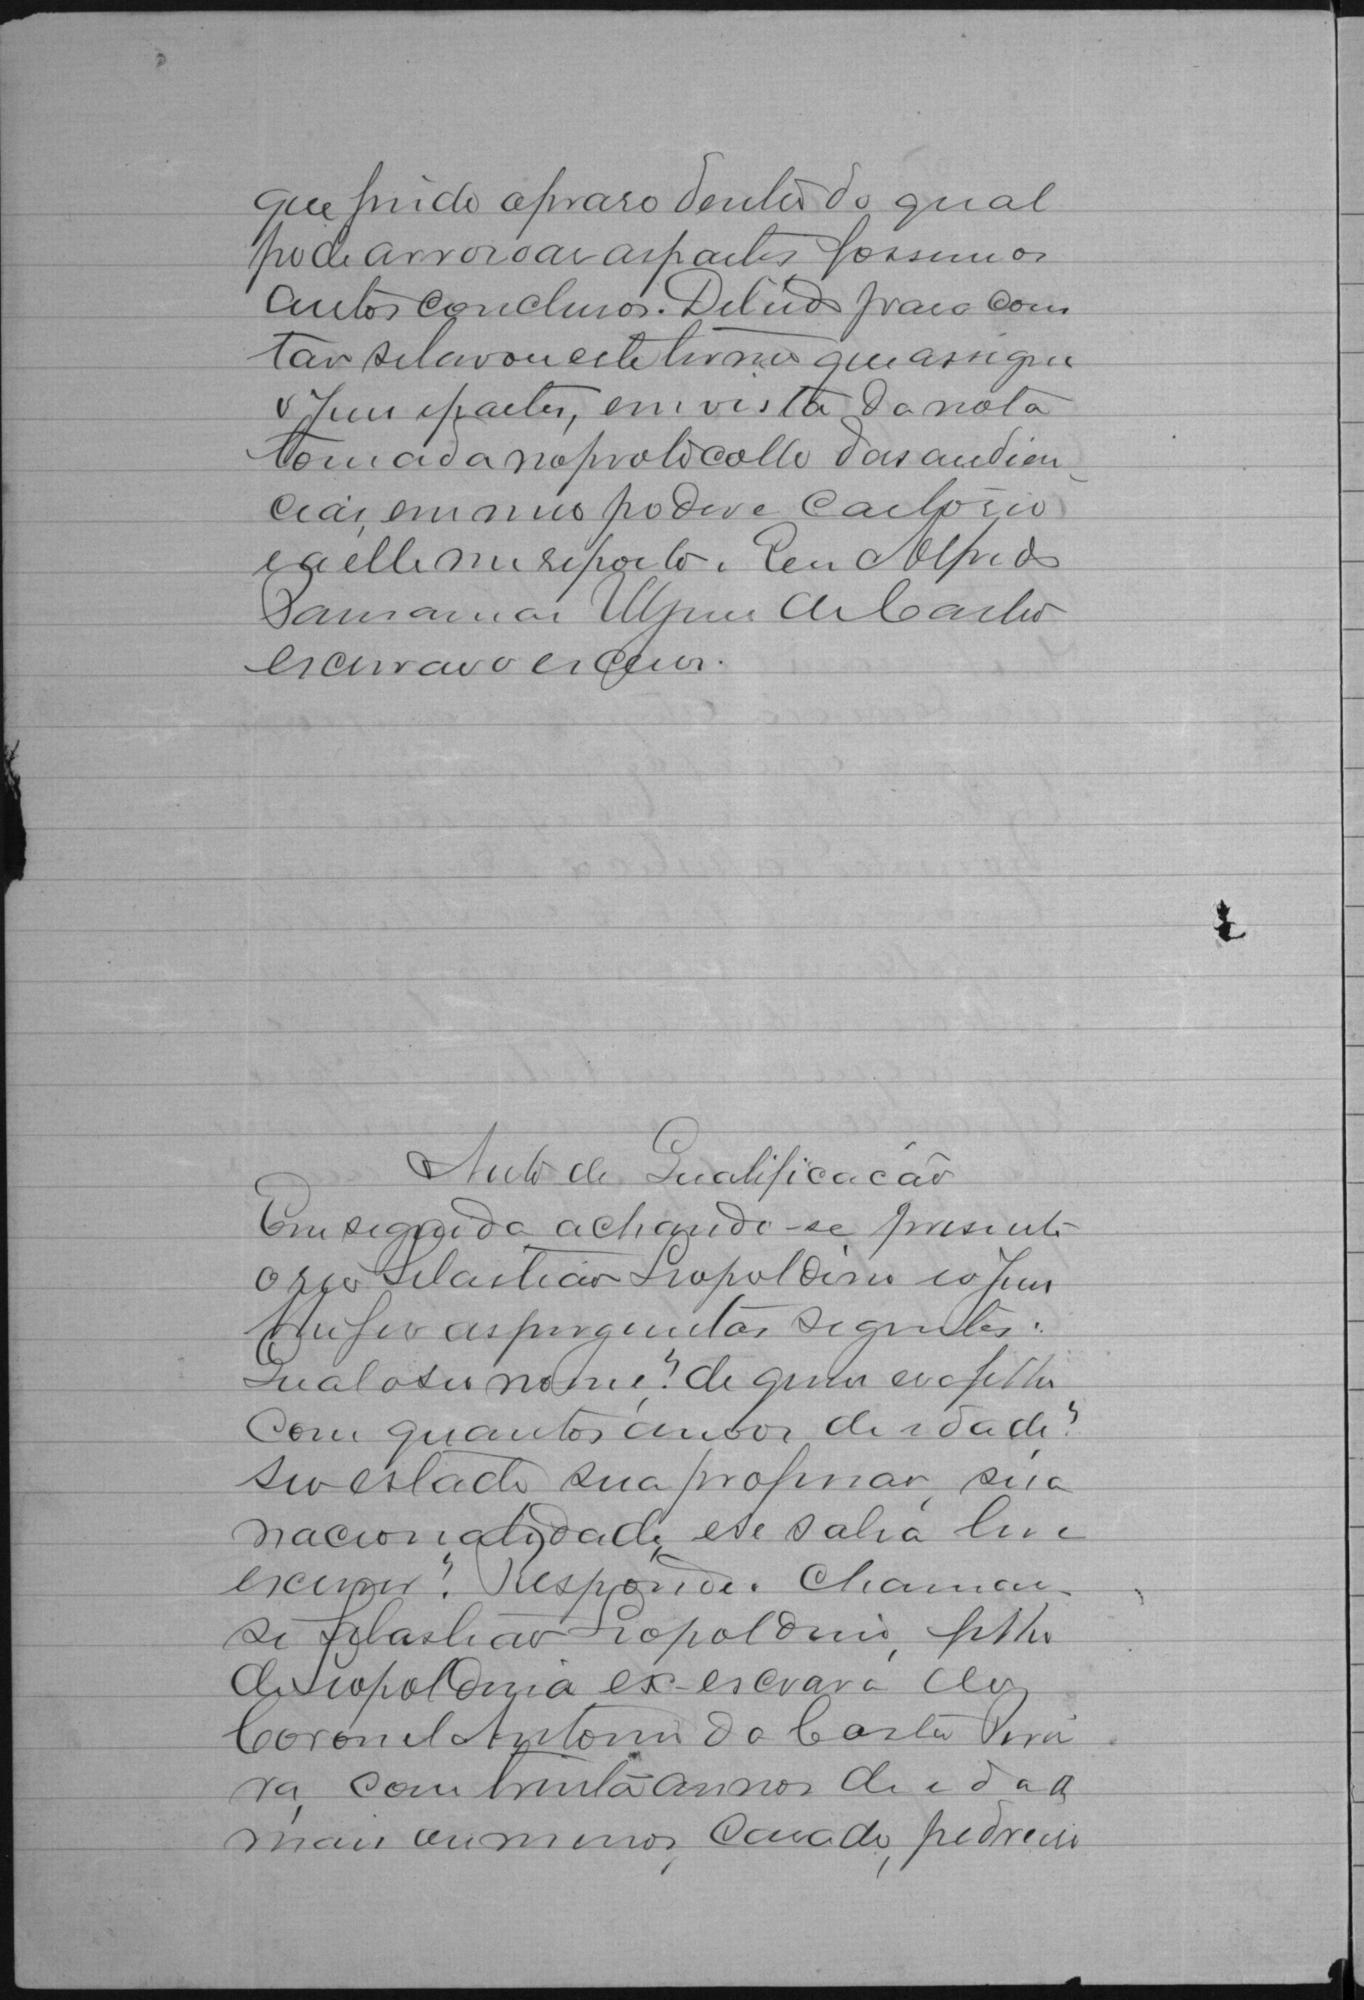 que findo o praso dentro do qual
pode arrosoar as partes, fossem os
autos conclusos. De tudo para cons
tar se lavrou este termo que assigna
o Juiz e partes, em vista da nota
tomada no protocollo das audien
cias, em meo poder e Cartorio
e a elle me reporto. Eu Alfredo
de Castro
escrivão o escrevi.
Auto de Qualificacão
Em seguida achando-se presente
o reo Sebastião Leopoldino e o Juiz
lhe fez as perguntas seguntes:
Qual o seu nome? de quem era filho
com quantos annos de idade?
seu estado sua profissão, sua
nacionalidade, e se sabia ler e
escrever? Respondeo. Chamar-
se Sebastião Leopoldino, filho
de Leopoldina ex-escrava do
Coronel Antonio da Costa Perei
ra, com trinta annos de idade
mais ou menos, casado, pedreiro